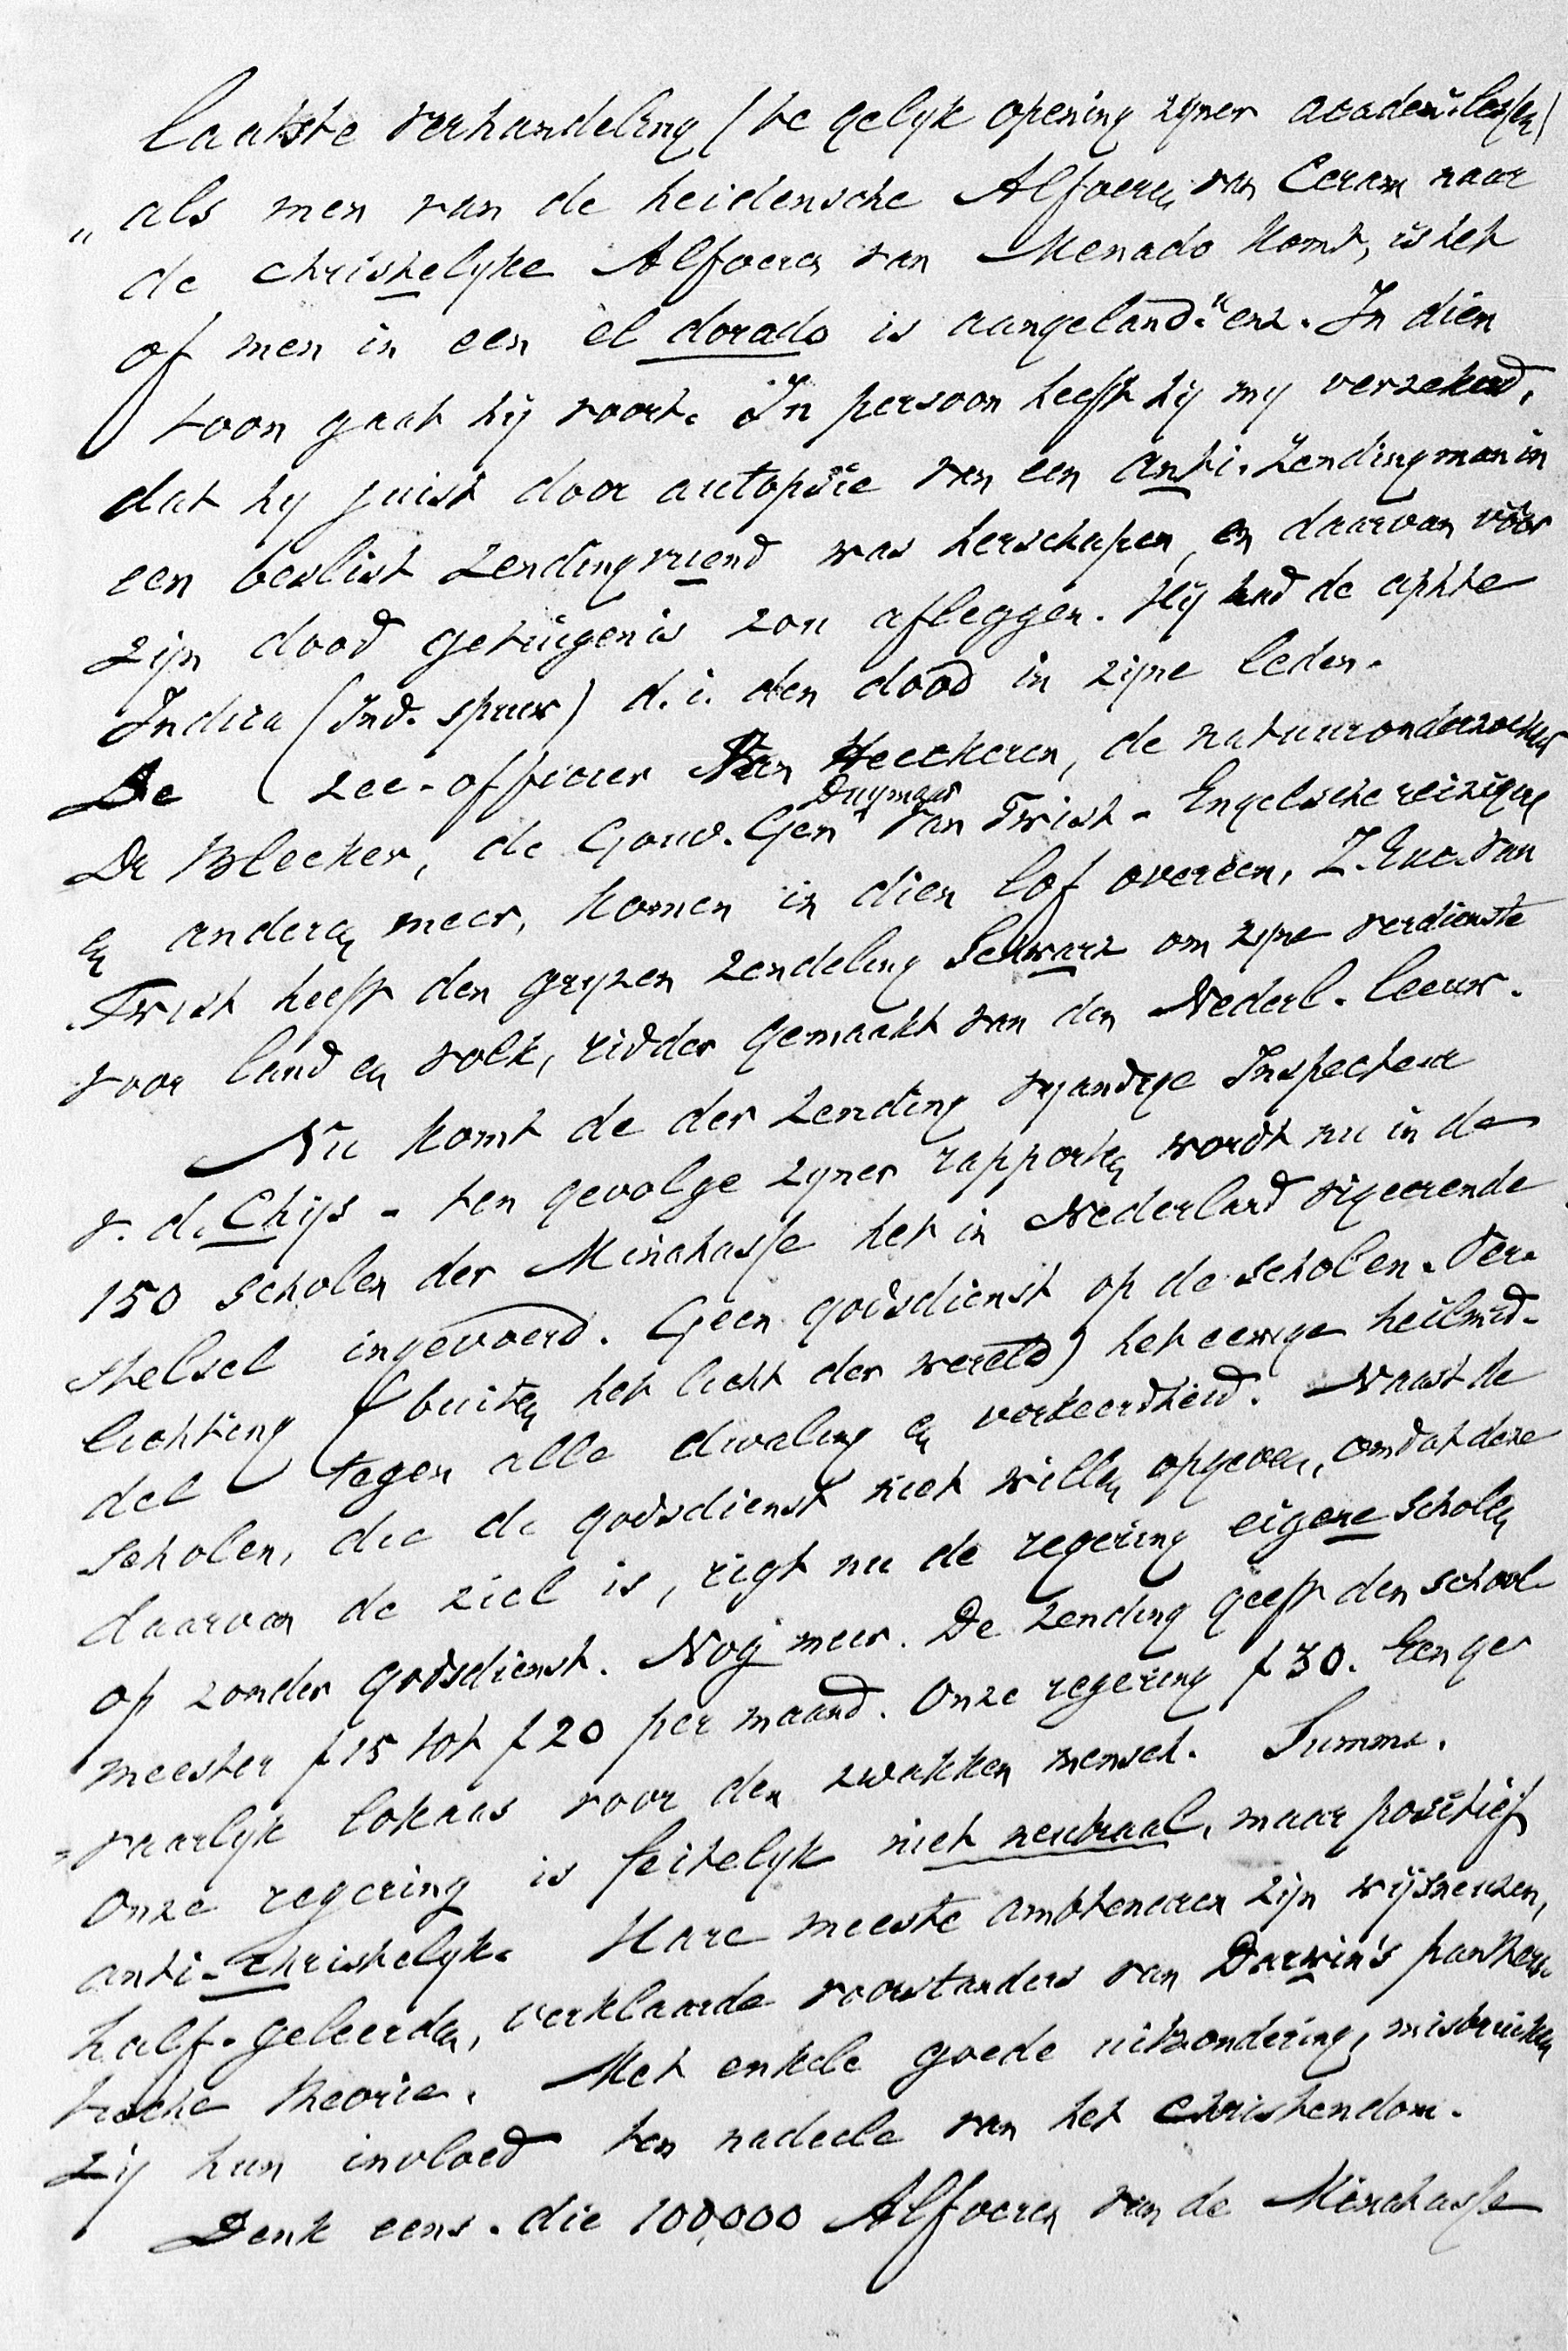 laatste verhandeling (te gelyk opening zyner academielessen)
„als men van de heidensche Alfoeren van Ceram naar
de christelyke Alfoeren van Menado komt, is het
of men in een el dorado is aangeland." enz. In dien
toon gaat hij voort. In persoon heeft hij my verzekerd,
dat hy juist door autopsie van een anti-zendingman in
een beslist zendingvriend was herschapen, en daarvan vóór
zijn dood getuigenis zou afleggen. Hij had de aphtae
Indica (Ind. spruw) d.i. den dood in zijne leden.
De zee-officier Van Heeckeren, de natuuronderzoeker
Dr Bleeker, de Gouv. Gen Duymaer van Twist - Engelsche reizigers
en anderen meer, komen in dien lof overeen, Z. Exc. van
Twist heeft den gryzen zendeling Schwarz om zyne verdienste
voor land en volk, ridder gemaakt van den Nederl. leeuw.
Nu komt de der zending vyandige Inspecteur
v. d. Chijs - ten gevolge zyner rapporten wordt nu in de
150 scholen der Minahasse het in Nederland vigeerende
stelsel ingevoerd. Geen godsdienst op de scholen. Ver-
lichting (buiten het licht der wereld) het eenige heilmid-
del tegen alle dwaling en verkeerdheid. Naast de
scholen, die de godsdienst niet willen opgeven, omdat deze
daarvan de ziel is, rigt nu de regering eigene scholen
op zonder godsdienst. Nog meer. De zending geeft den school-
meester f 15 tot f 20 per maand. Onze regering f 30. Een ge-
vaarlyk lokaas voor den zwakken mensch. Summa.
Onze regering is feitelyk niet neutraal, maar positief
anti-christelyk. Hare meeste ambtenaren zijn wijsneuzen,
half-geleerden, verklaarde voorstanders van Darwin's pantheis-
tische theorie. Met enkele goede uitzondering, misbruiken
zij hun invloed ten nadeele van het christendom.
Denk eens. die 100,000 Alfoeren van de Minahasse